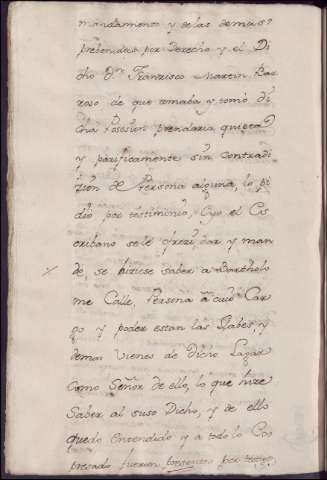 mandamiento y de las demas
prebendas por derecho y el Di
cho Dn. Francisco Martin Bar
roso de que tomaba y tomó di
cha Posesion prendaria, quieta
y pazificamente sin contradi
zion de Persona alguna, lo pi
dio por testimonio, Cuyo el Es
cribano se le ofrezi dar y man
de, se hiziese saber a Bartholo
me Calle, Persona a cuio Car
go y poder estan las llabes, y
demas vienes de dicho Lagar
como Señor de ello, lo que hize
Saber al suso Dicho, y de ello
quedo entendido y a todo lo Ex
presado fueron